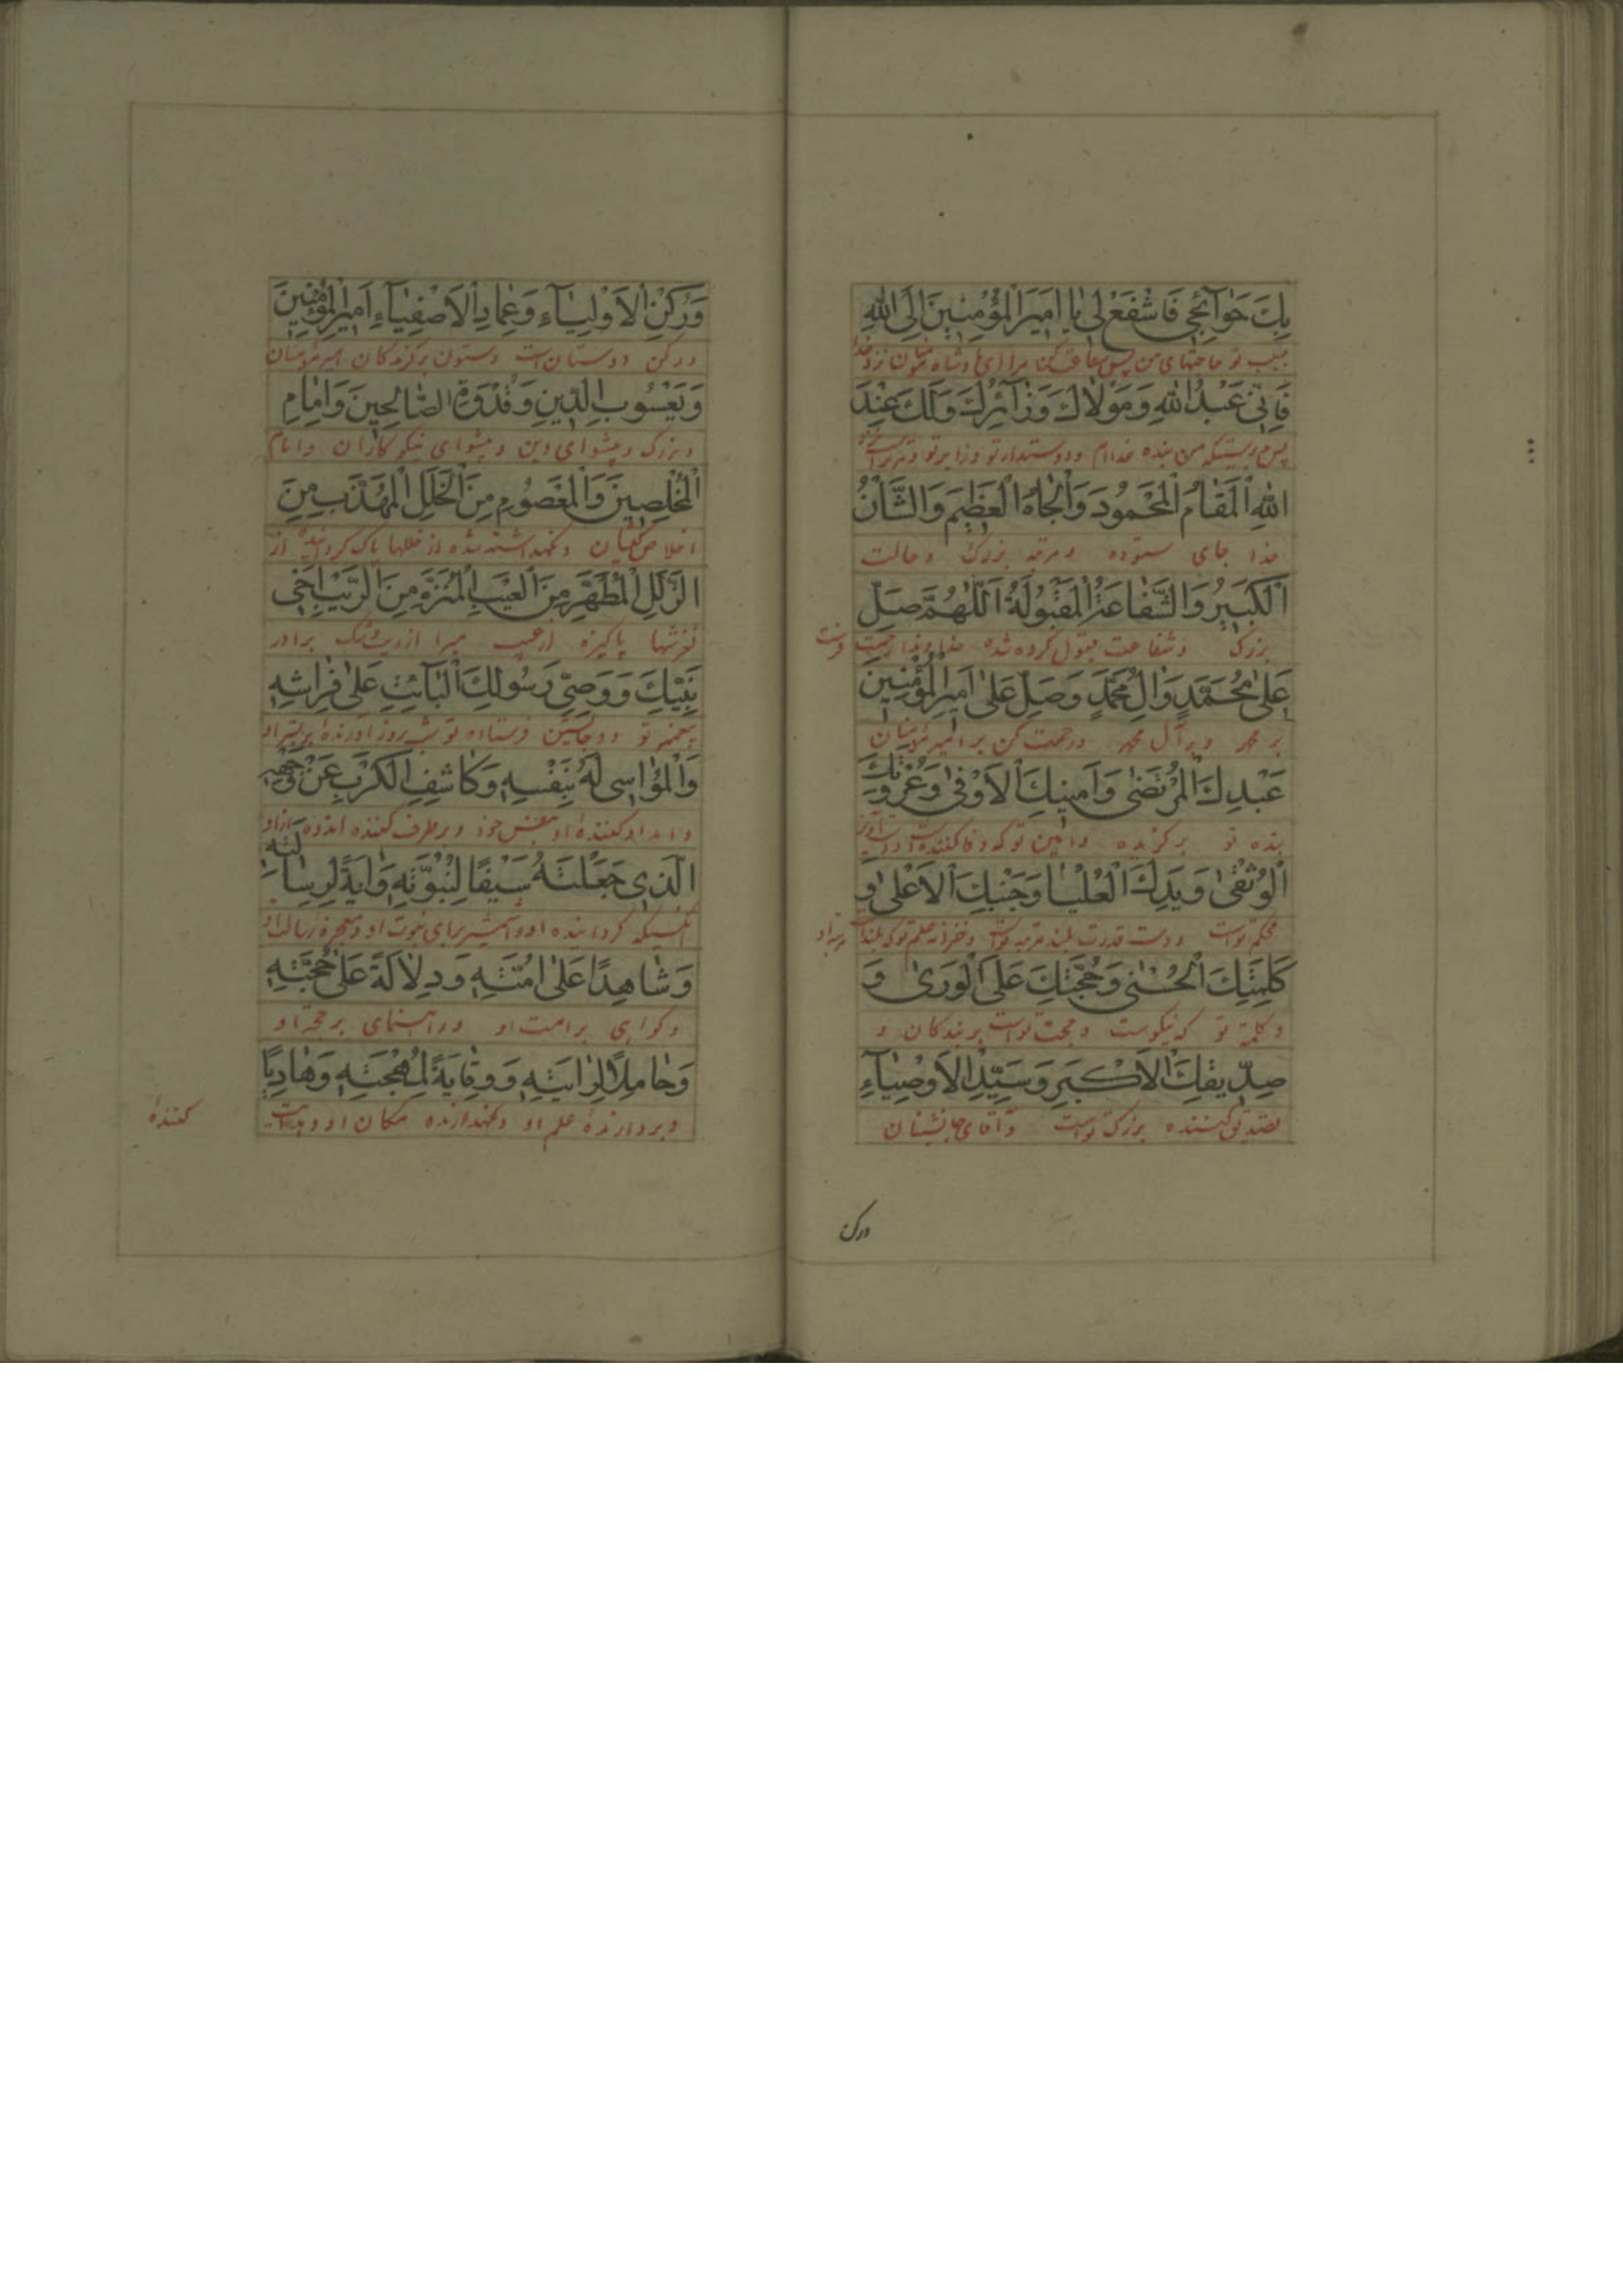 بِكَ حَوٰآئِجِي فَاشْفَعْ لِي يٰا اَمِيرَ الْمُؤْمِنِينَ اِلَى اللّٰهِ
بسبب تو حاجتهای من پس شفاعت کن مرا ای پادشاه مؤمنان نزد خدا
فَاِنّي عَبْدُ اللّٰهِ وَمَوْلاٰكَ وَزٰآئِرُكَ وَلَكَ عِنْدَ
پس بدرستیکه من بنده خداام ودوستدار تو وزایر تو ومر تراست نزد
اللّٰهِ الْمَقٰامُ الْمَحْمُودَ وَالْجٰاهُ الْعَظِيمَ وَالشَّأْنُ
خدا جای ستوده ومرتبه بزرگ وحالت
الْكَبِيرُ وَالشَّفٰاعَةُ الْمَقْبُولَةُ اَللّٰهُمَّ صَلِّ
بزرک وشفاعت مقبول کرده شده خداوندا رحمت فرست
عَلىٰ مُحَمَّدٍ وَاٰلِ مُحَمَّدٍ وَصَلِّ عَلىٰ اَمِيرِ الْمُؤْمِنِينَ
بر محمد وبر آل محمد ورحمت کن بر امیر مؤمنان
عَبْدِكَ الْمُرْتَضىٰ وَاَمِينِكَ الْاَوْفىٰ وَعُرْوَتِكَ
بنده تو برگزیده وامین تو که وفا کننده است ودست آویز
الْوُثْقىٰ وَيَدِكَ الْعُلْيٰا وَجَنْبِكَ الْاَعْلىٰ وَ
محکم تواست ودست قدرت بلند مرتبه تواست وخزانه علم تو که بلند است مرتبه او
كَلِمَتِكَ الْحُسْنىٰ وَحُجَّتِكَ عَلَى الْوَرىٰ وَ
وکلمه تو که نیکوست وحجت تواست بر بندکان و
صِدّيقِكَ الْاَكْبَرِ وَسَيِّدِ الْاَوْصِيٰآءِ
تصدیق کننده بزرک تواست وآقای جانشینان
ورکن
وَرُكْنِ الْاَوْلِيٰآءِ وَعِمٰادِ الْاَصْفِيٰآءِ اَمِيرِ الْمُؤْمِنِينَ
ورکن دوستان است وستون برگزیدکان امیر مؤمنان
وَيَعْسُوبِ الدّينِ وَقُدْوَةِ الصّٰالِحِينَ وَاِمٰامِ
وبزرک وپیشوای دین وپیشوای نیکوکاران وامام
الْمُخْلِصِينَ وَالْمَعْصُومِ مِنَ الْخَلَلِ الْمُهَذَّبِ مِنَ
اخلاص کیشان ونکهداشته شده از خللها پاک کردانیده از
الزَّلَلِ الْمُطَهَّرِ مِنَ الْعَيْبِ الْمُنَزَّهِ مِنَ الرَّيْبِ اَخِي
لغزشها پاکیزه از عیب مبرا از ریب وشک برادر
نَبِيِّكَ وَوَصِيِّ رَسُولِكَ الْبٰآئِتِ عَلىٰ فِرٰاشِهِ
پیغمبر تو ووجانشین فرستاده تو شب بروز آورنده بر بستر او
وَالْمُؤٰاسِي لَهُ بِنَفْسِهِ وَكٰاشِفِ الْكَرْبِ عَنْ وَجْهِهِ
وامداد کننده او بنفس خود وبرطرف کننده اندوه از او
الَّذِي جَعَلْتَهُ سَيْفًا لِنُبُوَّتِهِ وَاٰيَةً لِرِسٰالَتِهِ
آنکسیکه کردانیده او را شمشیر برای نبوت او ومعجزه رسالت او
وَشٰاهِدًا عَلىٰ اُمَّتِهِ وَدِلاٰلَةً عَلىٰ حُجَّتِهِ
وکواهی بر امت او وراهنمای بر حجة او
وَحٰامِلًا لِرٰايَتِهِ وَوِقٰايَةً لِمُهْجَتِهِ وَهٰادِيًا
وبردارنده علم او ونکهدارنده مکان او وهدایت
کننده